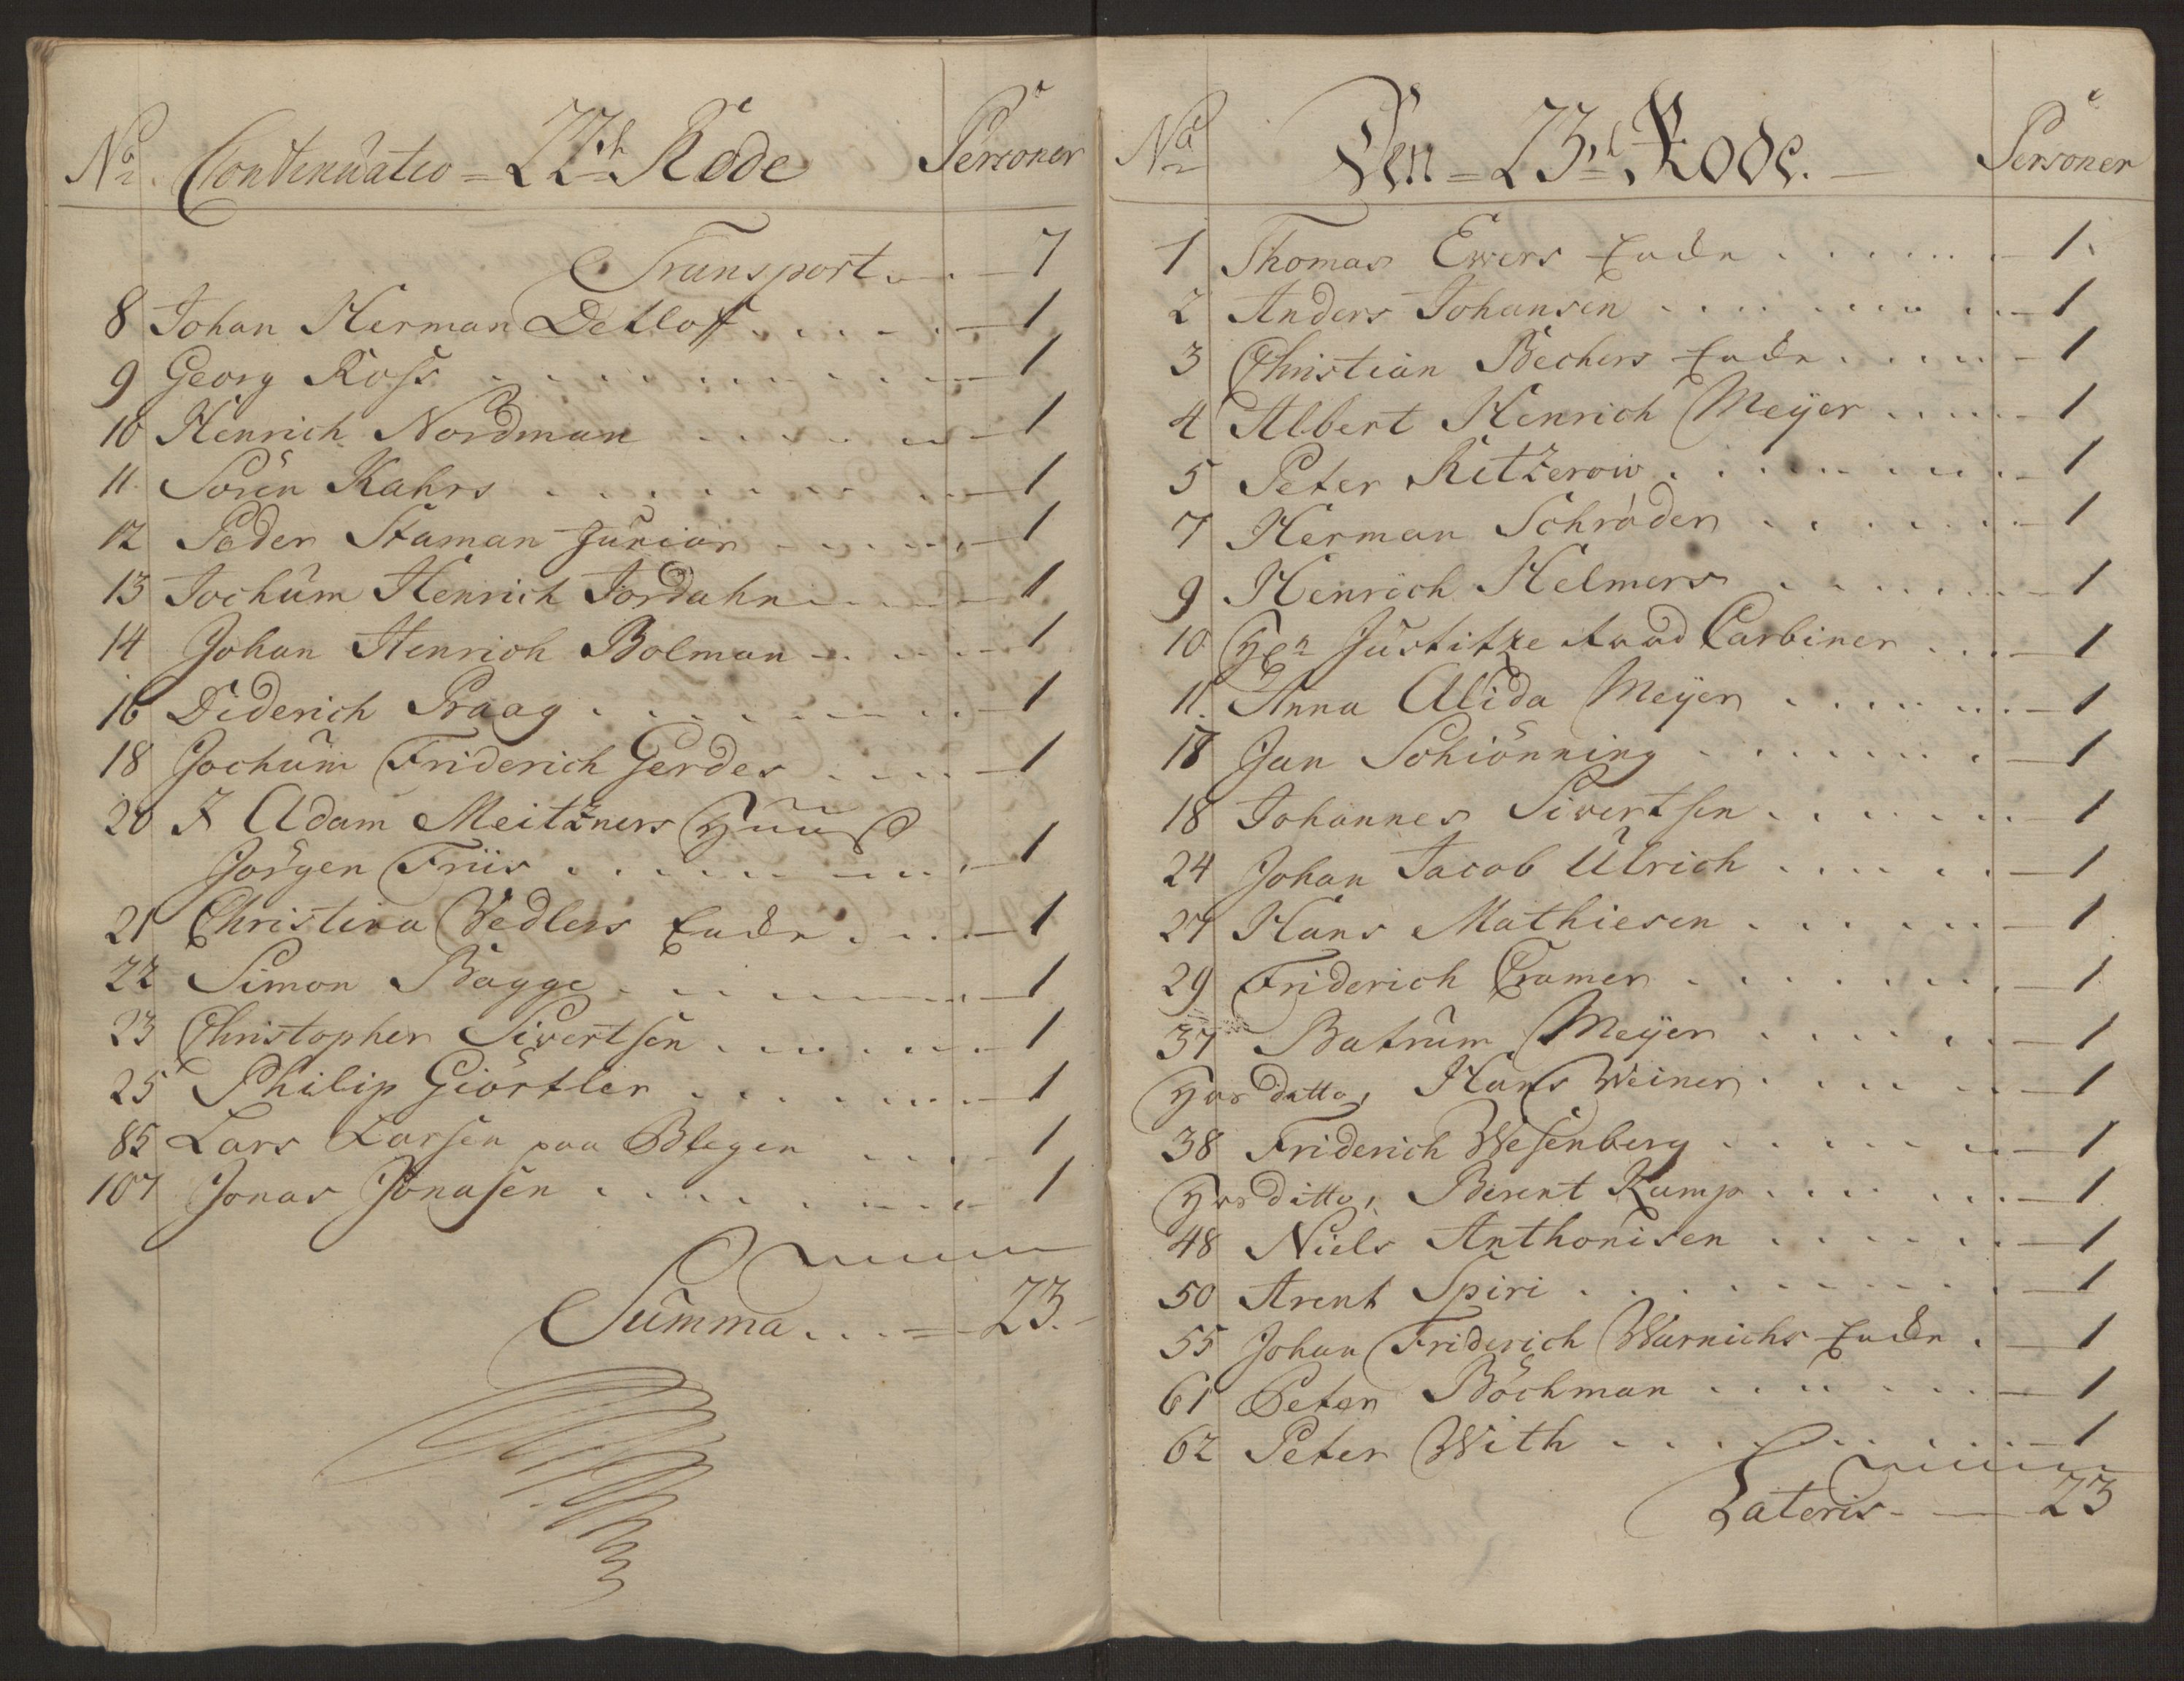 No. Continuatio = 22de Rode Personer
Transport . . 7
8 Johan Herman Detloff . . . . 1
9 Georg Ross . . . . 1
10 Henrich Nordman . . . . 1
11 Sören Kahrs . . . . 1
12 Peder Staman Junior . . . . 1
13 Jochum Henrich Jordahn . . . . 1
14 Johan Henrich Bolman . . . . 1
16 Diderich Praag . . . . 1
18 Jochum Friderich Gerdes . . . . 1
20 I Adam Meitzners Huus
Jörgen Friis . . . . 1
21 Christina Wedlers Encke . . . 1
22 Simon Bagge . . . . 1
23 Christopher Sivertsen . . . . 1
25 Philip Giörtler . . . . 1
85 Lars Larsen paa Blegen . . . . 1
107 Jonas Jonasen . . . . 1
Summa . . . = 23.
No. Den = 23de Rode. Personer
1 Thomas Ewers Encke . . . . 1
2 Anders Johansen . . . . 1
3 Christian Bechers Encke . . . . 1
4 Albert Henrich Meÿer . . . . 1
5 Peter Ritzerow . . . . 1
7 Herman Schröder . . . . 1
9 Henrich Helmers . . . . 1
10 Hr Justitze Raad Carbiner . . . 1
11. Anna Alida Meÿer . . . . 1
18 Jan Schiönning . . . . 1
18 Johannes Sivertsen . . . . 1
24 Johan Jacob Ulrich . . . . 1
27 Hans Mathiesen . . . . 1
29 Friderich Cramer . . . . 1
37 Batrum Meÿer . . . . 1
Hos ditto, Hans Weiner . . . . 1
38 Friderich Wesenberg . . . . 1
Hos ditto, Berent Kamp . . . . 1
48 Niels Anthonisen . . . . 1
50 Arent Spiri . . . . 1
55 Johan Friderich Warnichs Encke . 1
61 Peter Böchman . . . . 1
62 Peter With . . . . 1
Lateris - 23